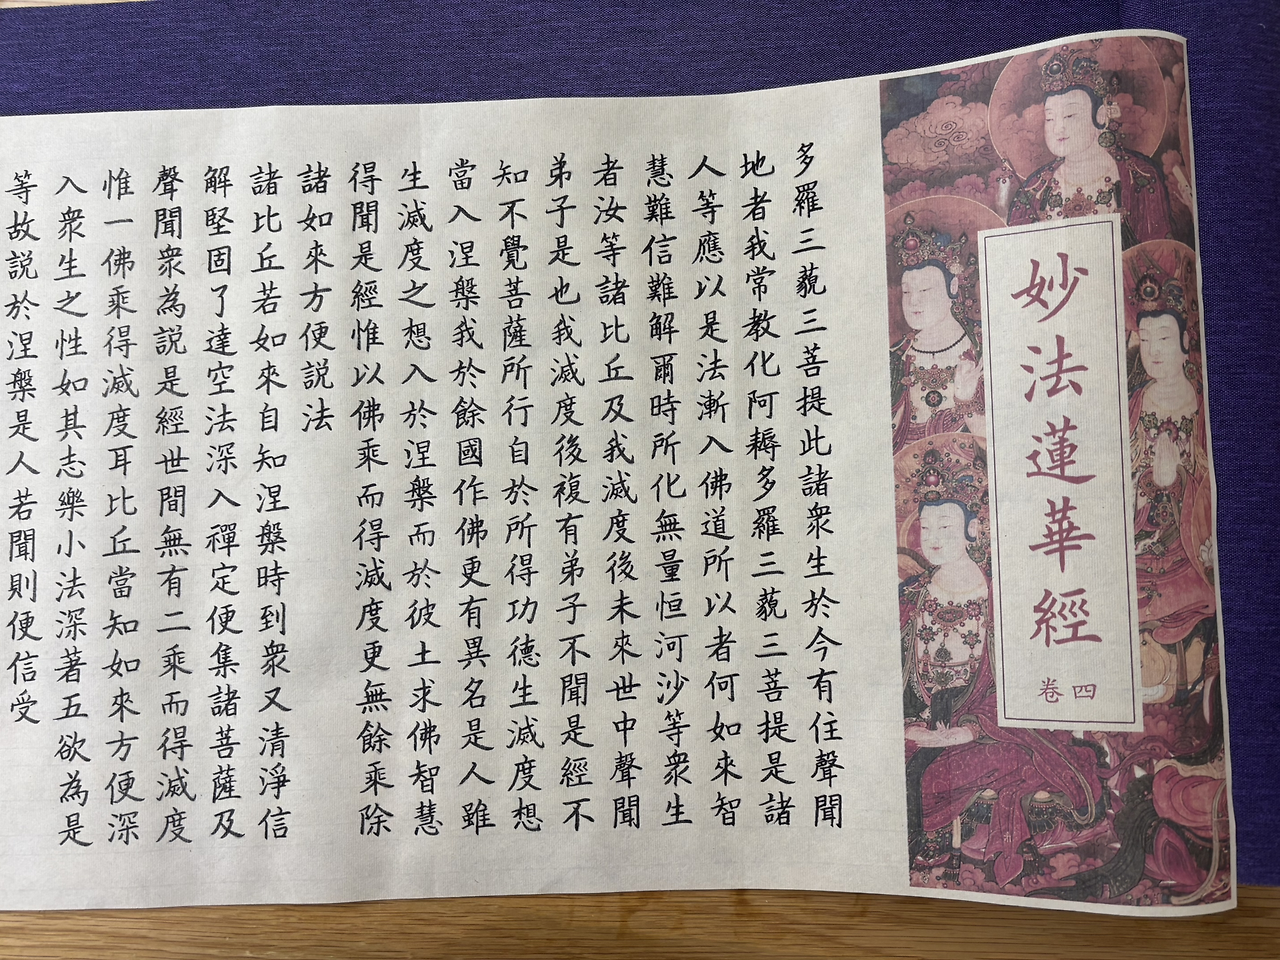 妙法蓮華經
卷四
多羅三藐三菩提此諸衆生於今有住聲聞
地者我常教化阿耨多羅三藐三菩提是諸
人等應以是法漸入佛道所以者何如來智
慧難信難解爾時所化無量恒河沙等衆生
者汝等諸比丘及我滅度後未來世中聲聞
弟子是也我滅度後複有弟子不聞是經不
知不覺菩薩所行自於所得功德生滅度想
當入涅槃我於餘國作佛更有異名是人雖
生滅度之想入於涅槃而於彼土求佛智慧
得聞是經惟以佛乘而得滅度更無餘乘除
諸如來方便説法
諸比丘若如來自知涅槃時到衆又清淨信
解堅固了達空法深入禪定便集諸菩薩及
聲聞衆為説是經世間無有二乘而得滅度
惟一佛乘得滅度耳比丘當知如來方便深
入衆生之性如其志樂小法深著五欲為是
等故説於涅槃是人若聞則便信受